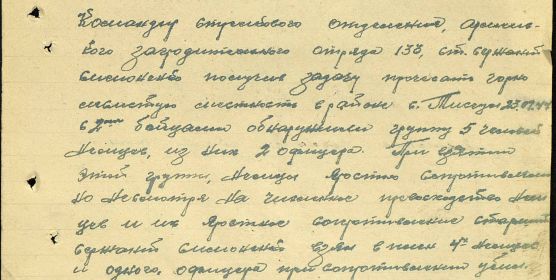 Командир стрелкового отделения, армейс-
кого заградительного отряда 133, ст. сержант
получив задачу прочесать горно
лесистую местность в районе с. 23.09.44
с 2мя бойцами обнаружили группу 5 человек
немцев, из них 2 офицера. При взятии
этой группы, немцы яростно сопротивлялись
но несмотря на численное превосходство нем
цев и их яростное сопротивление старший
сержант взял в плен 4х немцев
и одного офицера при сопротивлении убил.